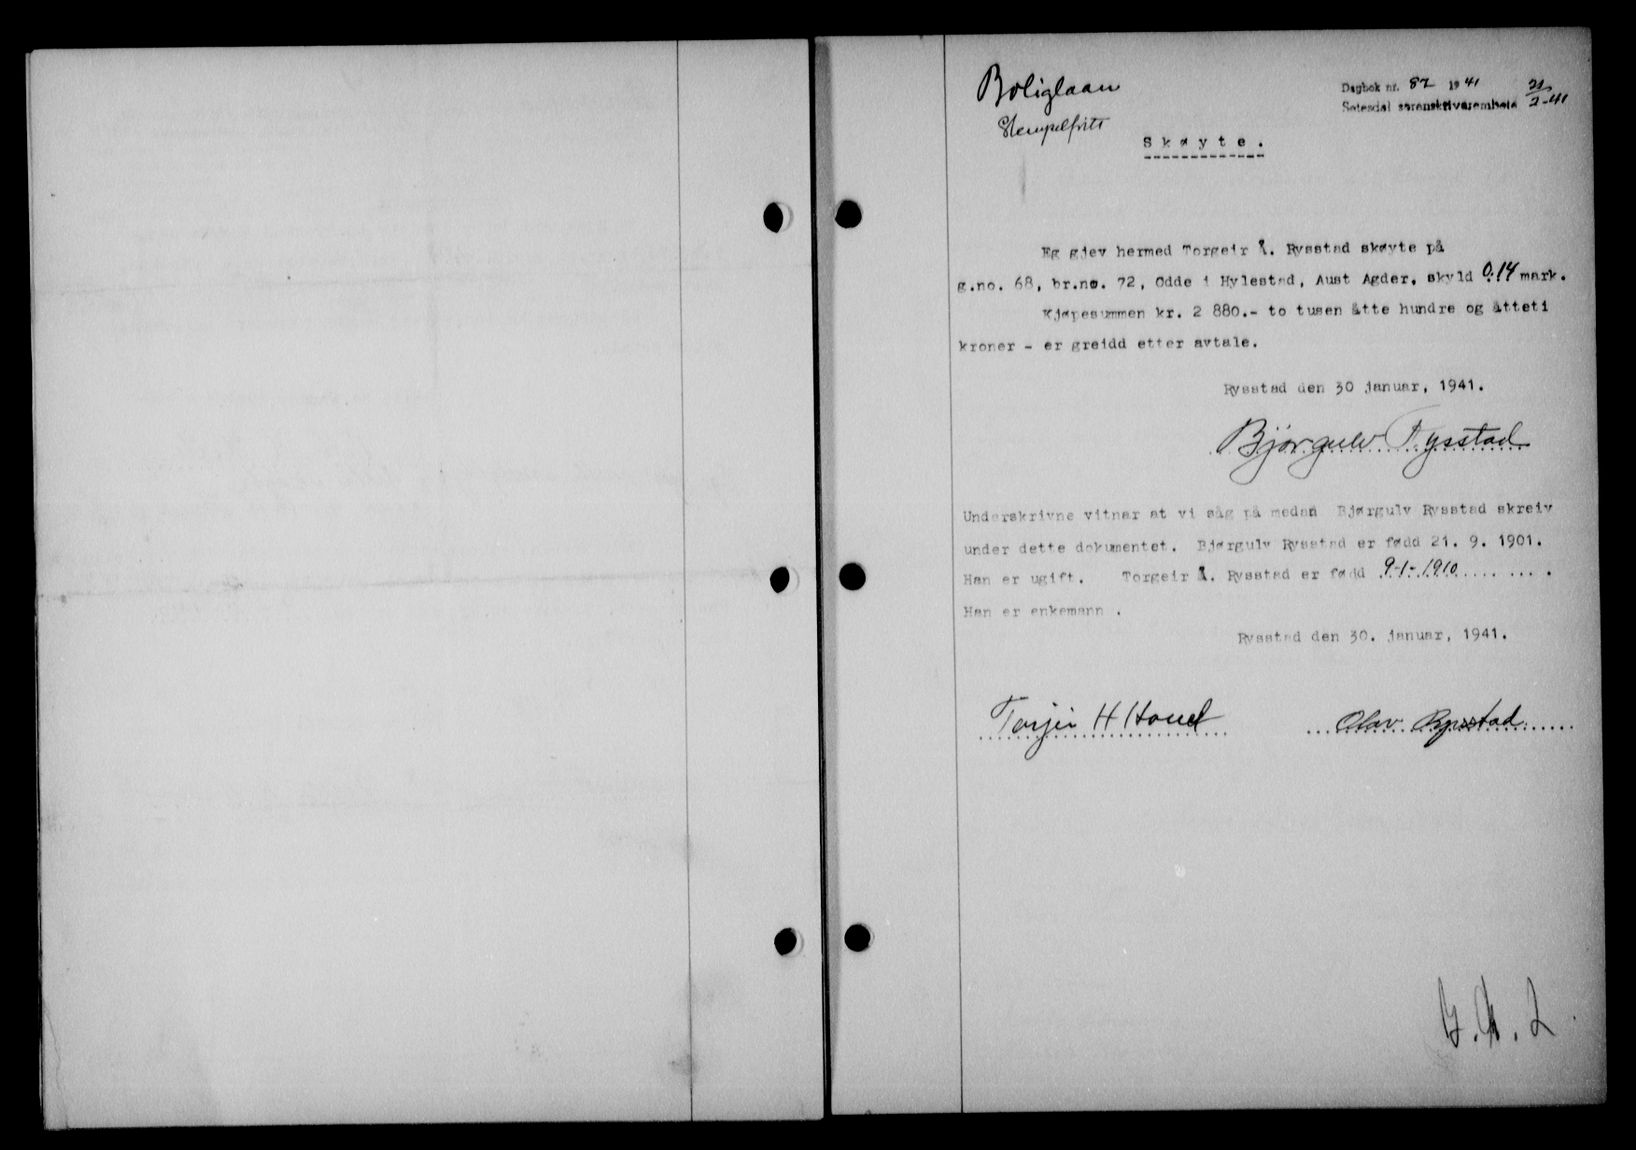 Boliglaan
Stempelfritt
Dagbok nr. 87 1941 21/2-41
Setesdal sorenskrivarembete
Skøyte.
Eg gjev hermed Torgeir Å. Rysstad skøyte på
g.no. 68, br.no. 72, Odde i Hylestad, Aust Agder, skyld 0.14 mark.
Kjøpesummen kr. 2 880.- to tusen åtte hundre og åtteti
kroner - er greidd etter avtale.
Rysstad den 30 januar, 1941.
Bjørgulv Rysstad
Underskrivne vitnar at vi såg på medan Bjørgulv Rysstad skreiv
under dette dokumentet. Bjørgulv Rysstad er fødd 21. 9. 1901.
Han er ugift. Torgeir Å. Rysstad er fødd 9-1-1910.
Han er enkemann.
Rysstad den 30. januar, 1941.
Torjei H Houet Olav Rysstad